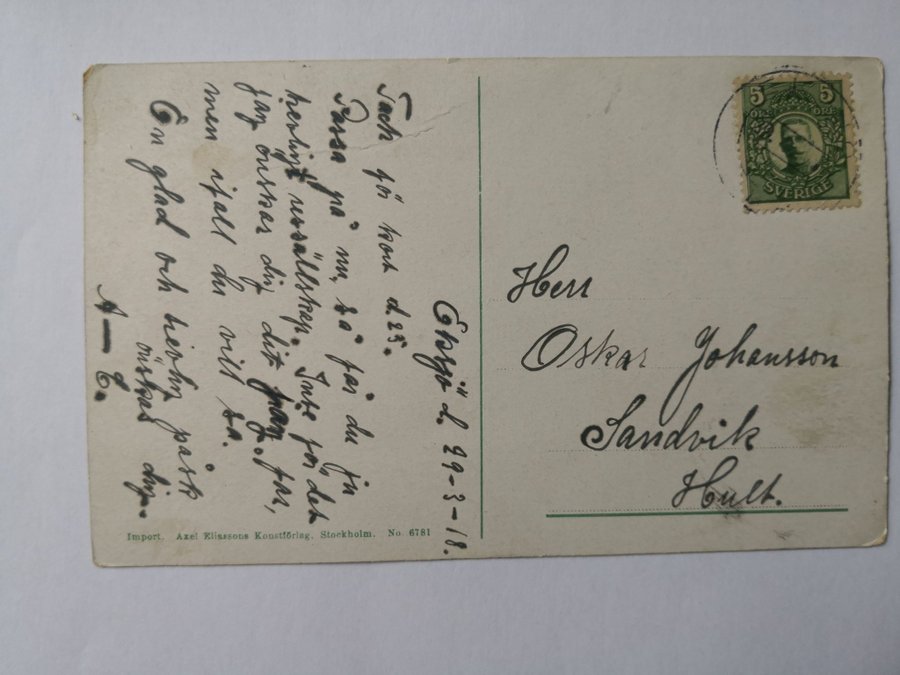 Eksjö d. 29-3-18.
Tack för kort d. 25.
Passa på nu, så får du
herligt ressällskap. Inte för det
jag önskar dig dit jag far,
men ifall du vill så.
En glad och trevlig påsk
önskas dig.
A — E.
5 5
SVERIGE
Herr
Oskar Johansson
Sandvik
Hult.
Import. Axel Eliassons Konstförlag. Stockholm. No. 6781